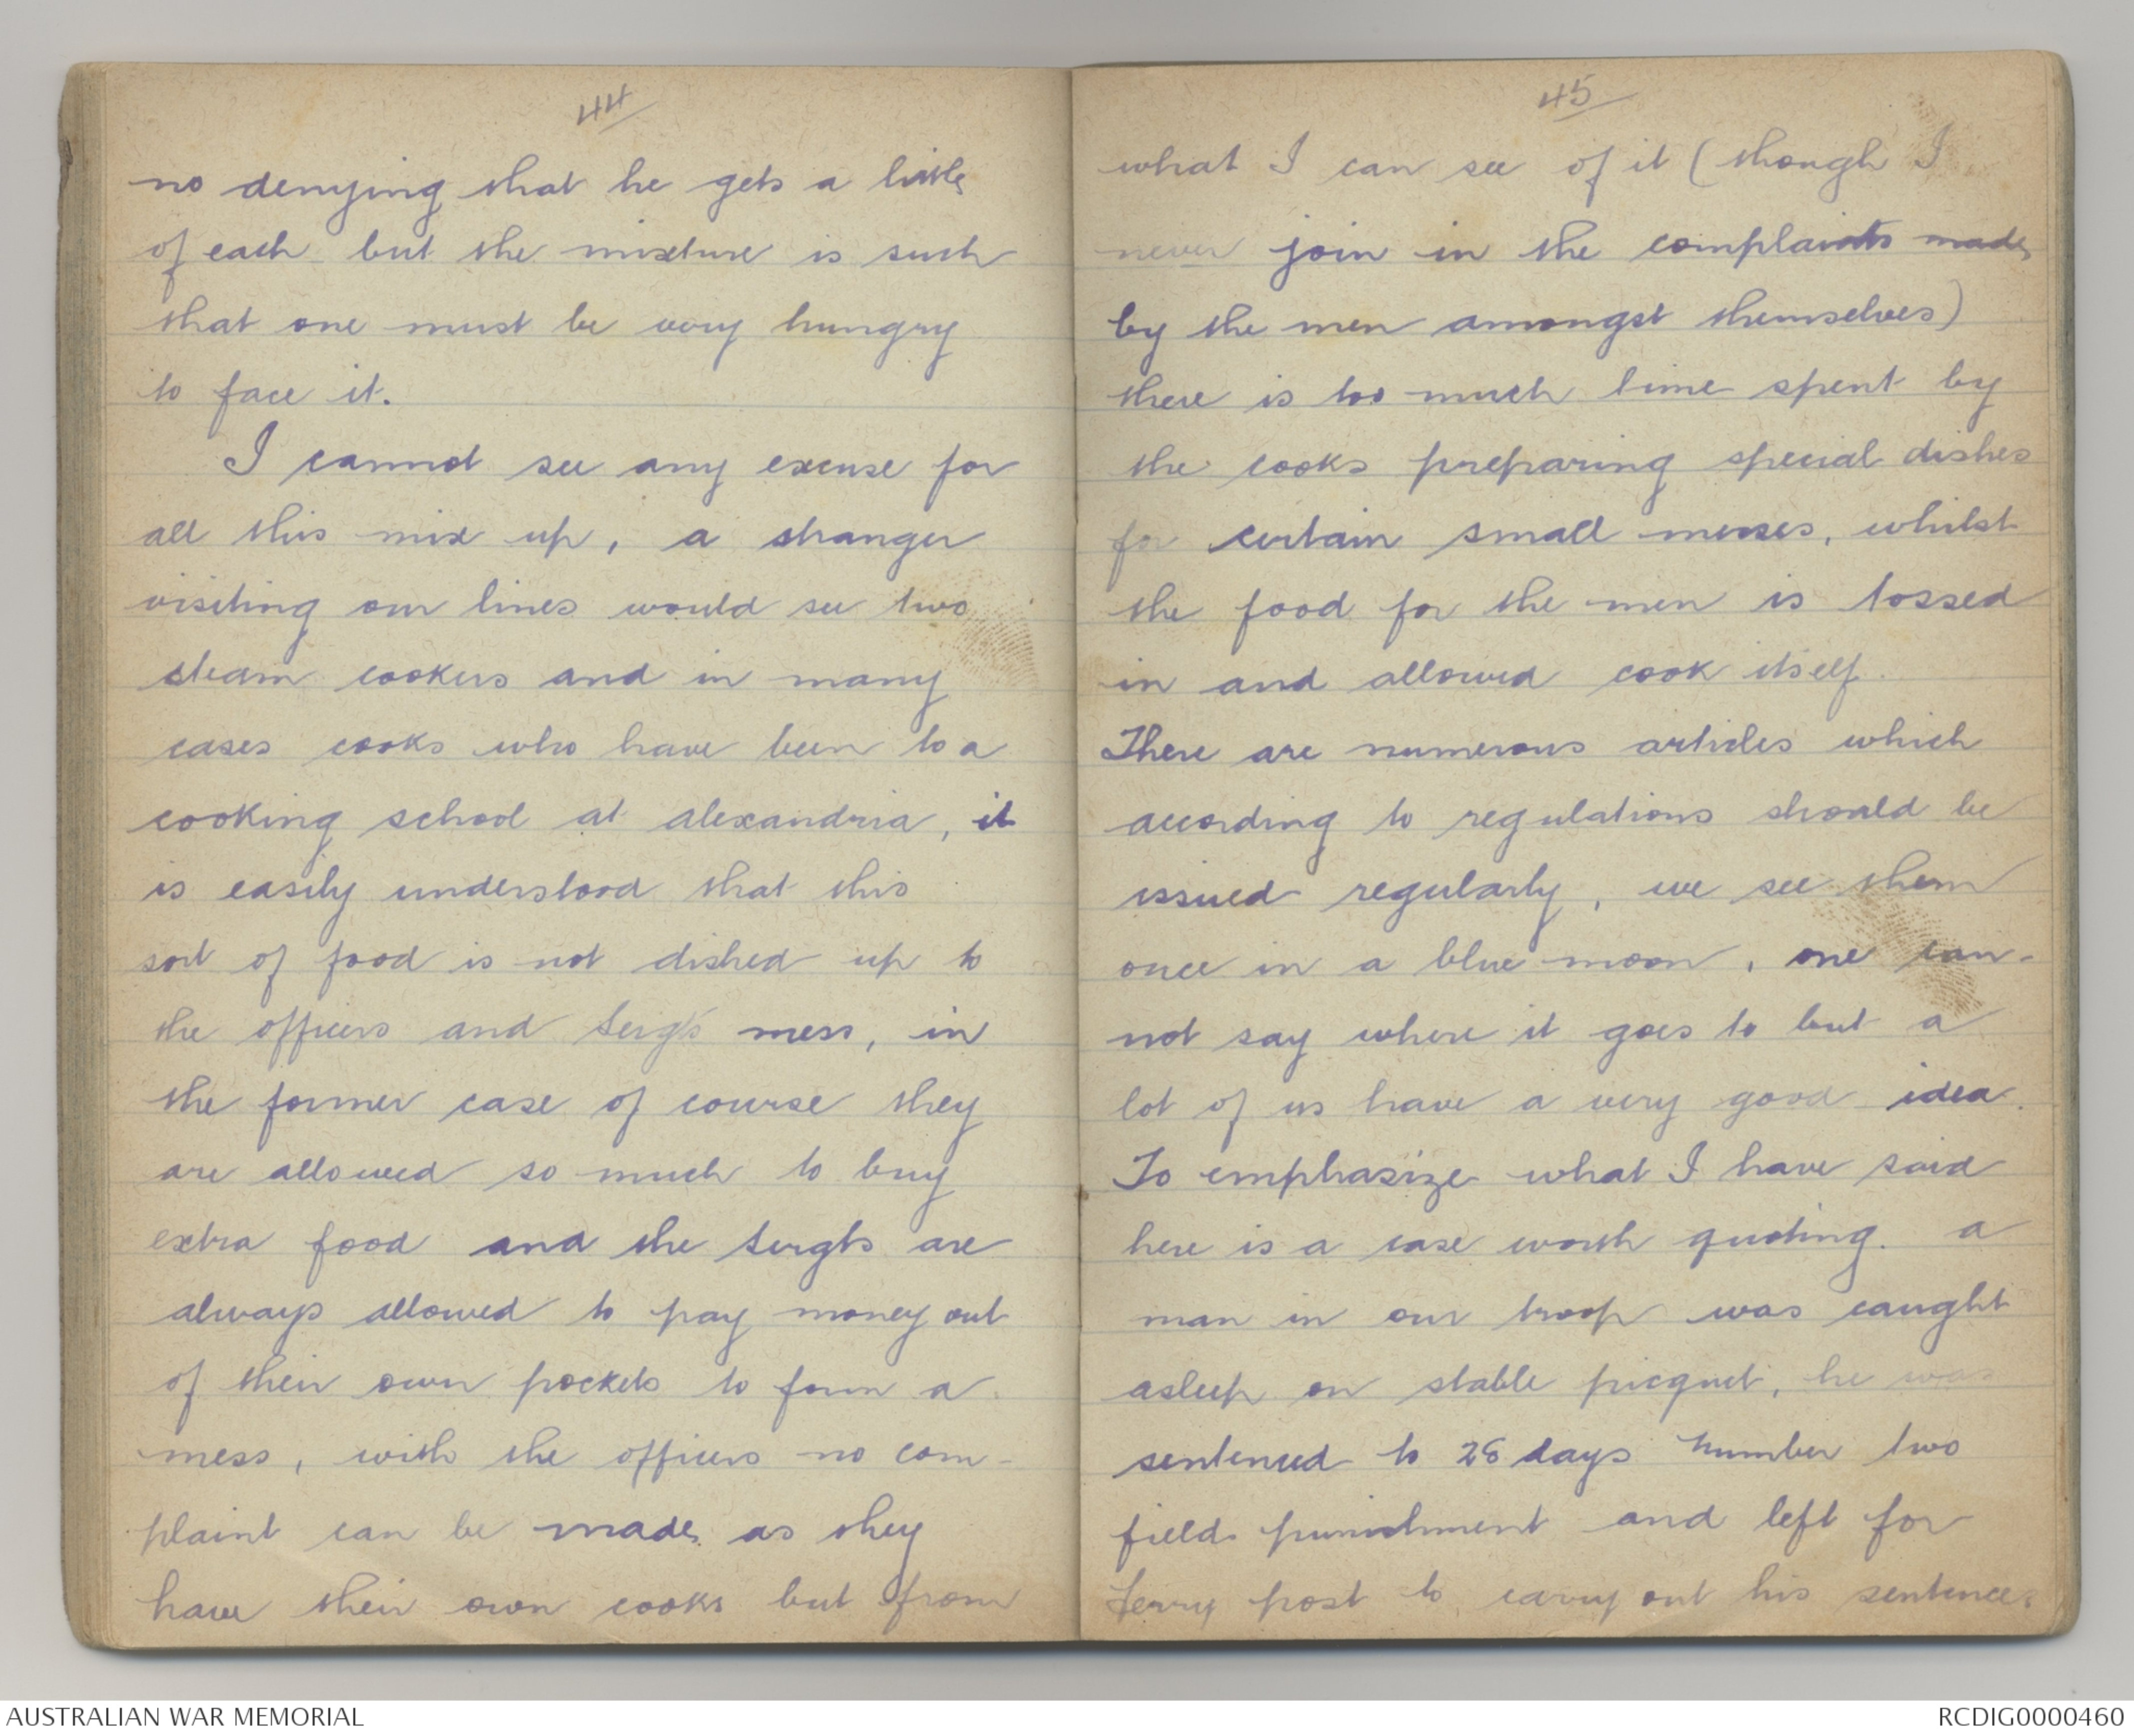 44
no denying that he gets a little
of each but the mixture is such
that one must be very hungry
to face it.
I cannot see any excuse for
all this mix up, a stranger
visiting our lines would see two
steam cookers and in many
cases cooks who have been to a
cooking school at alexandria, it
is easily understood that this
sort of food is not dished up to
the officers and Sergts mess, in
the former case of course they
are allowed so much to buy
extra food and the Sergts are
always allowed to pay money out
of their own pockets to form a
mess, with the officers no com-
plaint can be made as they
have their own cooks but from
45
what I can see of it (though I
never join in the complaints made
by the men amongst themselves)
there is too much time spent by
the cooks preparing special dishes
for certain small messes, whilst
the food for the men is tossed
in and allowed cook itself.
There are numerous articles which
according to regulations should be
issued regularly, we see them
once in a blue moon, one can-
not say where it goes to but a
lot of us have a very good idea.
To emphasize what I have said
here is a case worth quoting. a
man in our troop was caught
asleep on stable picquet, he was
sentenced to 28 days number two
field punishment and left for
Ferry post to carry out his sentence.
AUSTRALIAN WAR MEMORIAL
RCDIG0000460